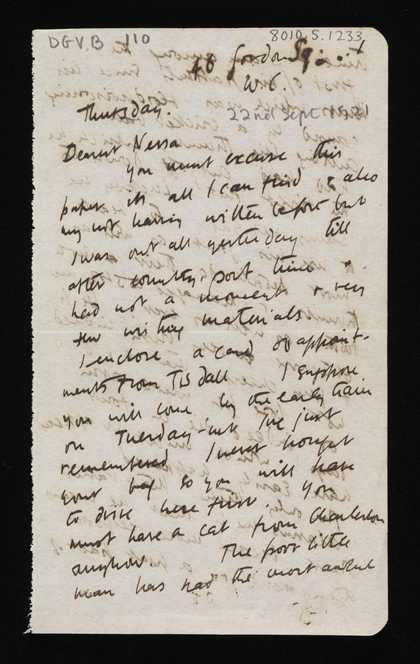 DGVB 110
8010.5.1233
46 Gordon Sq:
W.C.
Thursday.
22nd Sept 1921
Dearest Nessa
you must excuse this
paper its all I can find & also
my not having written before but
I was out all yesterday till
after country post time &
had not a moment & very
few writing materials.
I enclose a card of appoint-
ments from Tisdall I suppose
you will come by the early train
on Tuesday - but Ive just
remembered I never brought
your bag so you will have
to drive here first. You
must have a cab from Charleston
anyhow. The poor little
man has had the most awful